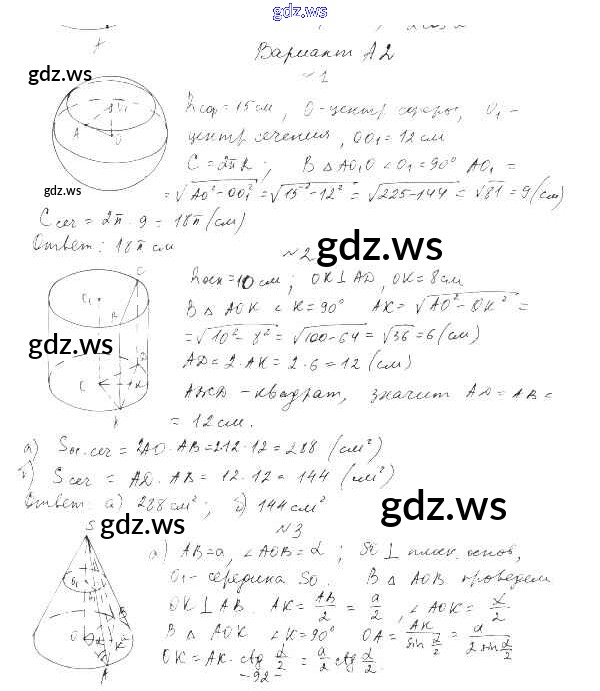 gdz.ws
Вариант А2
gdz.ws
№1
Rсф = 15 см, О-центр сферы, O₁ -
центр сечения, OO₁ = 12 см
C = 2πR; В △ AO₁O ∠O₁ = 90° AO₁ =
gdz.ws
= √AO² - OO₁² = √15² - 12² = √225-144 = √81 = 9 (см)
Cсеч = 2π · 9 = 18π (см)
Ответ: 18π см
№2 gdz.ws
Rосн = 10 см; OK ⊥ AD, OK = 8 см
В △ AOK ∠K = 90° AK = √AO² - OK² =
gdz.ws
= √10² - 8² = √100-64 = √36 = 6 (см)
AD = 2 · AK = 2 · 6 = 12 (см)
- квадрат, значит AD = AB =
= 12 см.
а) Sос.сеч = 2AO · AB = 2·12·12 = 288 (см²)
б) Sсеч = AD · AB = 12 · 12 = 144 (см²)
Ответ: а) 288 см²; б) 144 см²
gdz.ws
gdz.ws
№3
а) AB = a, ∠AOB = α; SO ⊥ плоск. основ,
O₁ - середина SO. В △ AOB проведем
OK ⊥ AB. AK = AB/2 = a/2, ∠AOK = α/2.
В △ AOK ∠K = 90° OA = AK/sin α/2 = a/2 sin α/2
OK = AK · ctg α/2 = a/2 ctg α/2.
-92-